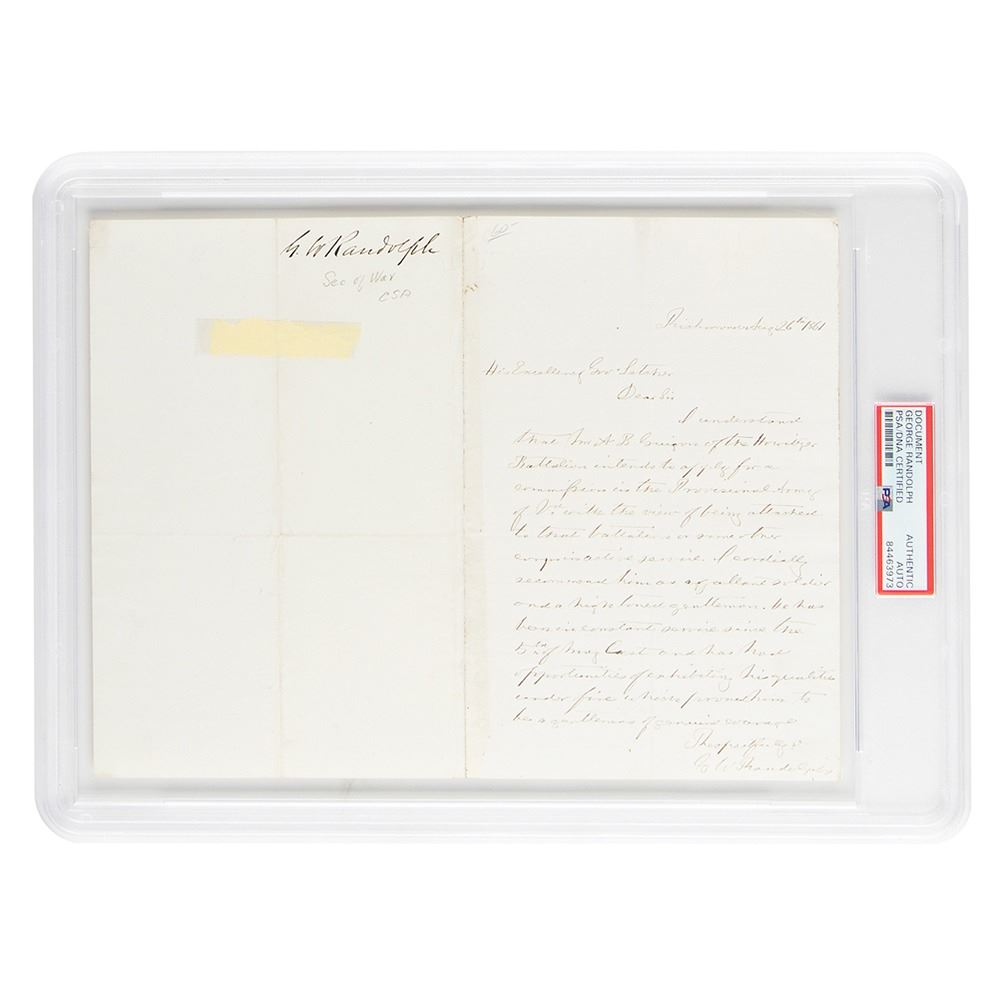 G. W Randolph
Sec of War
CSA
Richmond Aug 26th 1861
His Excellency Gov Letcher
Dear Sir
I understand
that Mr A B Guigon of the Howitzer
Battalion intends to apply for a
commission in the Provisional Army
of Va with the view of being attached
to that battalion or some other
active service. I cordially
recommend him as a gallant soldier
and a high toned gentleman. He has
been in constant service since the
5th of May last and has had
opportunities of exhibiting his qualities
under fire which proved him to
be a gentleman of genuine courage
G W Randolph
DOCUMENT
GEORGE RANDOLPH
PSA/DNA CERTIFIED
AUTHENTIC
AUTO
84463973
PSA